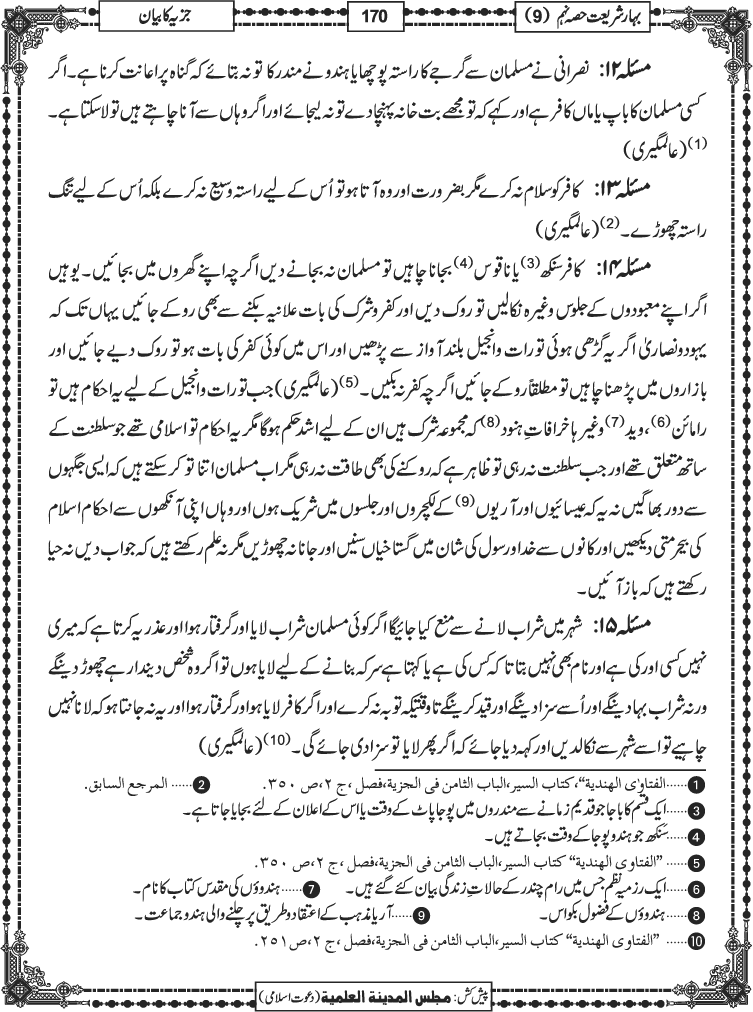 بہارِ شریعت حصہ نہم (9)
170
جزیہ کا بیان
مسئلہ ۱۲: نصرانی نے مسلمان سے گرجے کا راستہ پوچھا یا ہندو نے مندر کا تو نہ بتائے کہ گناہ پر اعانت کرنا ہے۔ اگر
کسی مسلمان کا باپ یا ماں کافر ہے اور کہے کہ تو مجھے بت خانہ پہنچا دے تو نہ لیجائے اور اگر وہاں سے آنا چاہتے ہیں تو لا سکتا ہے۔
(1) (عالمگیری)
مسئلہ ۱۳: کافر کو سلام نہ کرے مگر بضرورت اور وہ آتا ہو تو اُس کے لیے راستہ وسیع نہ کرے بلکہ اُس کے لیے تنگ
راستہ چھوڑے۔ (2) (عالمگیری)
مسئلہ ۱۴: کافر سنکھ (3) یا ناقوس (4) بجانا چاہیں تو مسلمان نہ بجانے دیں اگرچہ اپنے گھروں میں بجائیں۔ یوہیں
اگر اپنے معبودوں کے جلوس وغیرہ نکالیں تو روک دیں اور کفر و شرک کی بات علانیہ بکنے سے بھی روکے جائیں یہاں تک کہ
یہود و نصاریٰ اگر یہ گڑھی ہوئی تورات و انجیل بلند آواز سے پڑھیں اور اس میں کوئی کفر کی بات ہو تو روک دیے جائیں اور
بازاروں میں پڑھنا چاہیں تو مطلقاً روکے جائیں اگرچہ کفر نہ بکیں۔ (5) (عالمگیری) جب تورات و انجیل کے لیے یہ احکام ہیں تو
رامائن (6)، وید (7) وغیرہا خرافاتِ ہنود (8) کہ مجموعہ شرک ہیں ان کے لیے اشد حکم ہوگا مگر یہ احکام تو اسلامی تھے جو سلطنت کے
ساتھ متعلق تھے اور جب سلطنت نہ رہی تو ظاہر ہے کہ روکنے کی بھی طاقت نہ رہی مگر اب مسلمان اتنا تو کر سکتے ہیں کہ ایسی جگہوں
سے دور بھاگیں نہ یہ کہ عیسائیوں اور آریوں (9) کے لکچروں اور جلسوں میں شریک ہوں اور وہاں اپنی آنکھوں سے احکام اسلام
کی بیحرمتی دیکھیں اور کانوں سے خدا و رسول کی شان میں گستاخیاں سنیں اور جانا نہ چھوڑیں مگر نہ علم رکھتے ہیں کہ جواب دیں نہ حیا
رکھتے ہیں کہ باز آئیں۔
مسئلہ ۱۵: شہر میں شراب لانے سے منع کیا جائیگا اگر کوئی مسلمان شراب لایا اور گرفتار ہوا اور عذر یہ کرتا ہے کہ میری
نہیں کسی اور کی ہے اور نام بھی نہیں بتاتا کہ کس کی ہے یا کہتا ہے سرکہ بنانے کے لیے لایا ہوں تو اگر وہ شخص دیندار ہے چھوڑ دینگے
ورنہ شراب بہا دینگے اور اُسے سزا دینگے اور قید کرینگے تاوقتیکہ توبہ نہ کرے اور اگر کافر لایا ہو اور گرفتار ہوا اور یہ نہ جانتا ہو کہ لانا نہیں
چاہیے تو اسے شہر سے نکالدیں اور کہہ دیا جائے کہ اگر پھر لایا تو سزا دی جائے گی۔ (10) (عالمگیری)
1 ......الفتاوى الهندية“، كتاب السير،الباب الثامن فى الجزية،فصل، ج ٢،ص ٣٥٠. 2 ...... المرجع السابق.
3 ......ایک قسم کا باجا جو قدیم زمانے سے مندروں میں پوجا پاٹ کے وقت یا اس کے اعلان کے لئے بجایا جاتا ہے۔
4 ......سَنکھ جو ہندو پوجا کے وقت بجاتے ہیں۔
5 ...... ”الفتاوى الهندية“ كتاب السير،الباب الثامن فى الجزية،فصل ،ج ٢،ص ٣٥٠.
6 ......ایک رزمیہ نظم جس میں رام چندر کے حالاتِ زندگی بیان کئے گئے ہیں۔ 7 ......ہندوؤں کی مقدس کتاب کا نام۔
8 ......ہندوؤں کے فضول بکواس۔ 9 ......آریا مذہب کے اعتقاد و طریق پر چلنے والی ہندو جماعت۔
10 ...... ”الفتاوى الهندية“ كتاب السير،الباب الثامن فى الجزية،فصل ،ج ٢،ص٢٥١.
پیش کش: مجلس المدینۃ العلمیۃ (دعوت اسلامی)